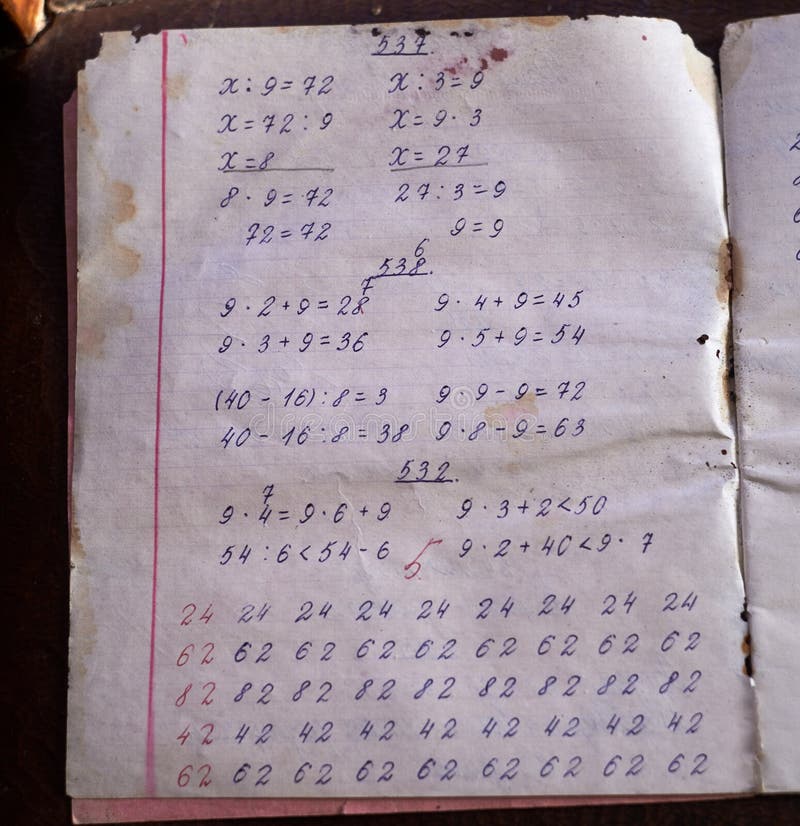 537.
x : 9 = 72 x : 3 = 9
x = 72 : 9 x = 9 · 3
x = 8 x = 27
8 · 9 = 72 27 : 3 = 9
72 = 72 9 = 9
6
538.
7
9 · 2 + 9 = 28 9 · 4 + 9 = 45
9 · 3 + 9 = 36 9 · 5 + 9 = 54
(40 - 16) : 8 = 3 9 · 9 - 9 = 72
40 - 16 : 8 = 38 9 · 8 - 9 = 63
532.
7
9 · 4 = 9 · 6 + 9 9 · 3 + 2 < 50
54 : 6 < 54 - 6 5 9 · 2 + 40 < 9 · 7
24 24 24 24 24 24 24 24 24
62 62 62 62 62 62 62 62 62
82 82 82 82 82 82 82 82 82
42 42 42 42 42 42 42 42 42
62 62 62 62 62 62 62 62 62
dreamstime